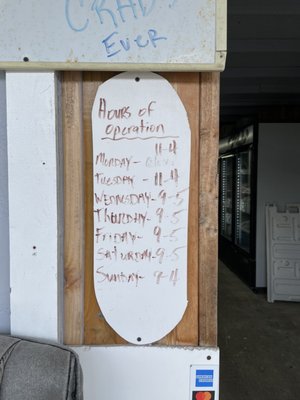 CRABS
Ever
Hours of
operation
11-4
Monday-
Tuesday - 11-4
Wednesday- 9-5
Thursday- 9-5
Friday- 9-5
Saturday- 9-5
Sunday- 9-4
AMERICAN
EXPRESS